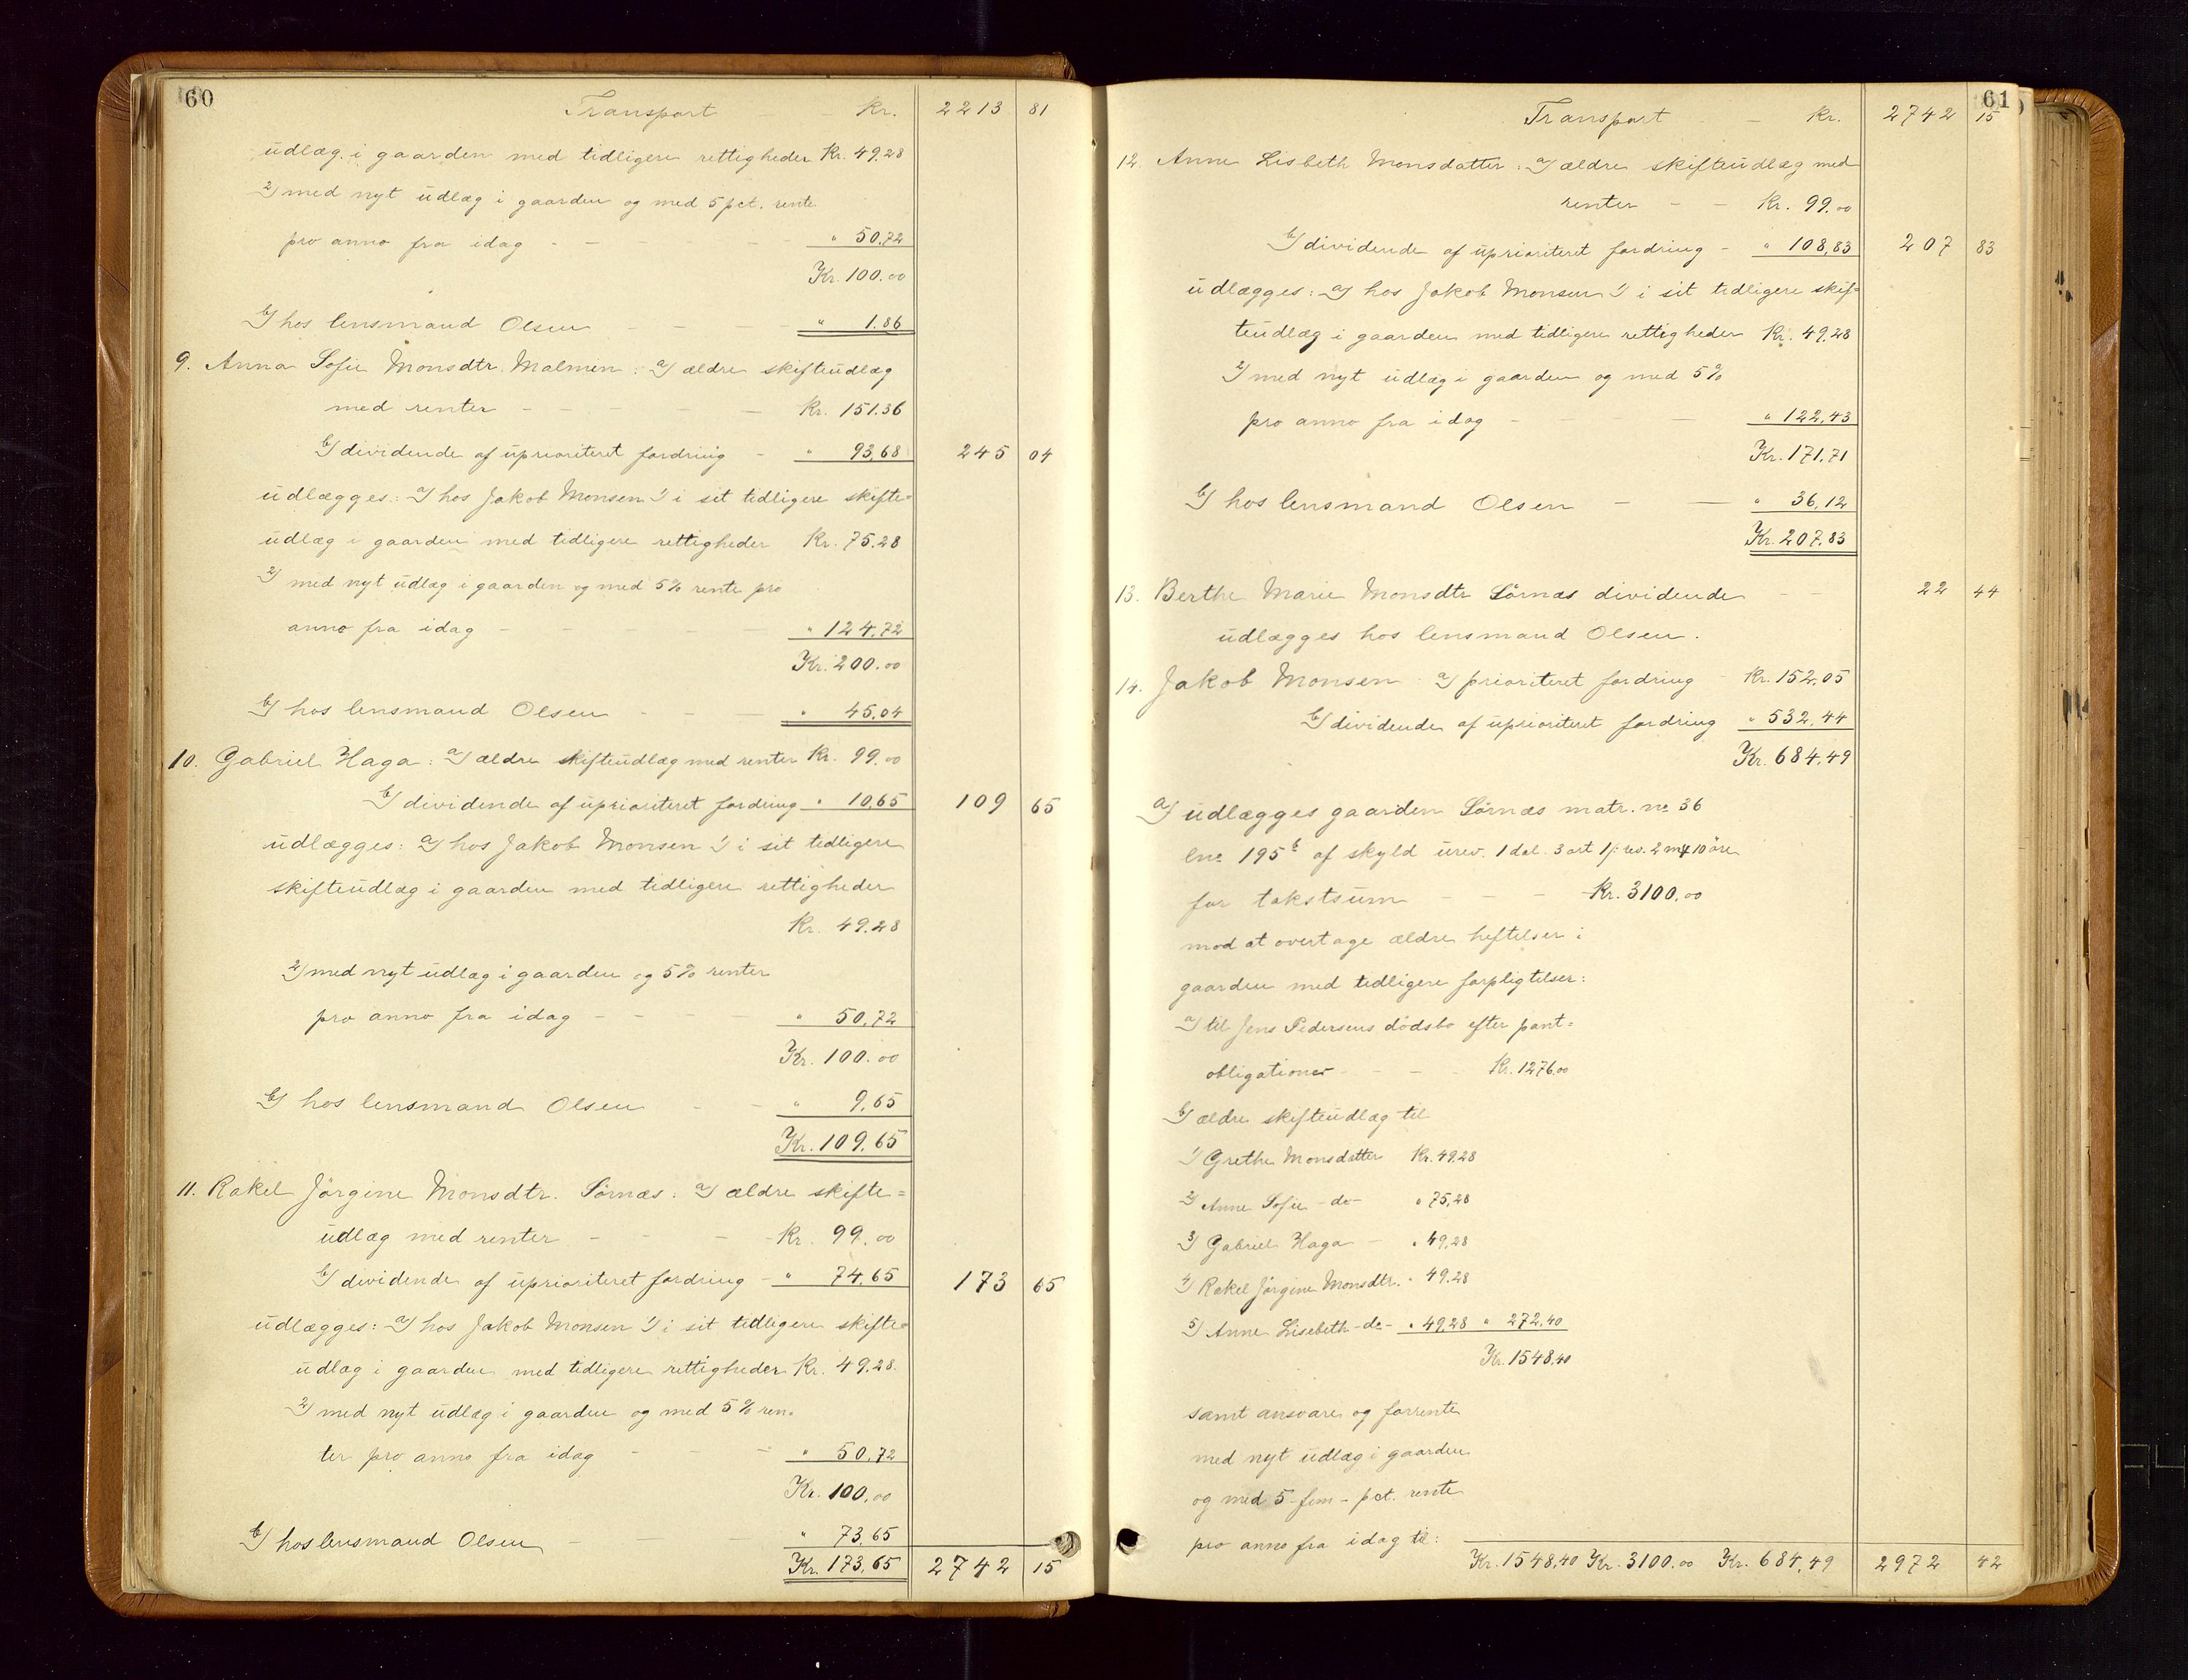 60
Transport - - Kr. 2213 81
udlæg i gaarden med tidligere rettigheder Kr. 49.28
2) med nyt udlæg i gaarden og med 5 pct. rente
pro anno fra idag - - - - - - " 50.72
Kr. 100.00
b) hos lensmand Olsen - - - - " 1.86
9. Anna Sofie Monsdtr. Malmin: a) ældre skifteudlæg
med renter - - - - - Kr. 151.36
b) dividende af uprioriteret fordring - " 93,68 245 04
udlægges: a) hos Jakob Monsen 1) i sit tidligere skifte=
udlæg i gaarden med tidligere rettigheder Kr. 75,28
2) med nyt udlæg i gaarden og med 5% rente pro
anno fra idag - - - - " 124,72
Kr. 200.00
b) hos lensmand Olsen - - - " 45.04
10. Gabriel Haga: a) ældre skifteudlæg med renter Kr. 99.00
b) dividende af uprioriteret fordring " 10,65 109 65
udlægges: a) hos Jakob Monsen 1) i sit tidligere
skifteudlæg i gaarden med tidligere rettigheder
Kr. 49.28
2) med nyt udlæg i gaarden og 5% renter
pro anno fra idag - - - - " 50,72
Kr. 100.00
b) hos lensmand Olsen - - " 9,65
Kr. 109,65
11. Rakel Jörgine Monsdtr. Sörnæs: a) ældre skifte=
udlæg med renter - - - Kr. 99.00
b) dividende af uprioriteret fordring - " 74,65 173 65
udlægges: a) hos Jakob Monsen 1) i sit tidligere skifte=
udlæg i gaarden med tidligere rettigheder Kr. 49.28.
2) med nyt udlæg i gaarden og med 5% ren=
ter pro anno fra idag - - - " 50,72
Kr. 100,00
b) hos lensmand Olsen - - - " 73,65
Kr. 173,65 2742 15
61
Transport - - Kr. 2742 15
12. Anne Lisbeth Monsdatter: a) ældre skifteudlæg med
renter - - Kr. 99.00
b) dividende af uprioriteret fordring - " 108,83 207 83
udlægges: a) hos Jakob Monsen 1) i sit tidligere skif=
teudlæg i gaarden med tidligere rettigheder Kr. 49,28
2) med nyt udlæg i gaarden og med 5%
pro anno fra idag - - - " 122,43
Kr. 171,71
b) hos lensmand Olsen - - " 36,12
Kr. 207,83
13. Berthe Marie Monsdtr Sörnæs dividende - - 22 44
udlægges hos lensmand Olsen.
14. Jakob Monsen: a) prioriteret fordring - Kr. 152,05
b) dividende af uprioriteret fordring " 532,44
Kr. 684,49
a) udlægges gaarden Sörnæs matr. no 36
lno 195 b af skyld urev. 1 dal. 3 ort 1 ſ: rev. 2 m 10 öre
for takstsum - - - Kr. 3100,00
mod at overtage ældre heftelser i
gaarden med tidligere forpligtelser:
a) til Jens Pedersens dödsbo efter pant=
obligationer - - - Kr. 1276.00
b) ældre skifteudlæg til
1) Grethe Monsdatter Kr. 49.28
2) Anne Sofie - do - " 75,28
3) Gabriel Haga - " 49,28
4) Rakel Jörgine Monsdtr. " 49.28
5) Anne Lisebeth - do - " 49,28 " 272,40
Kr. 1548,40
samt ansvare og forrente
med nyt udlæg i gaarden
og med 5 - fem - pct. rente
pro anno fra idag til:
Kr. 1548,40 Kr. 3100.00 Kr. 684,49 2972 42